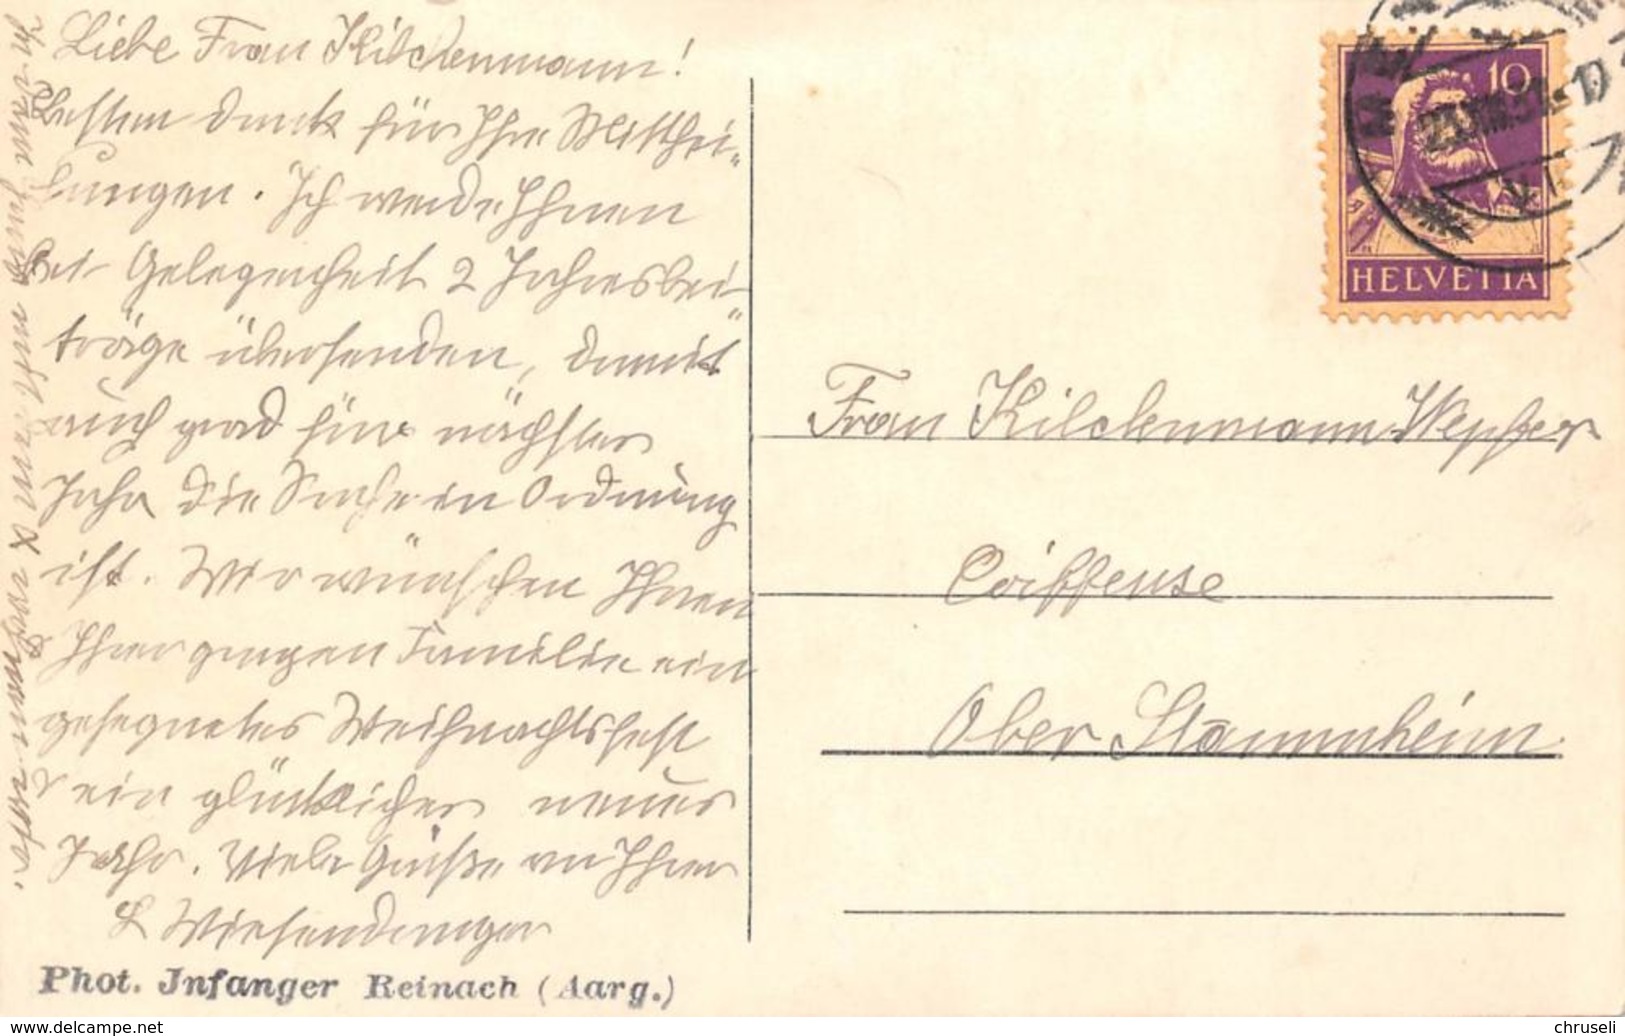 Liebe Frau Kilchenmann!
Besten Dank für Ihre Mitthei„
lungen. Ich werde Ihnen
bei Gelegenheit 2 Jahresbei„
träge übersenden, damit
auch grad fürs nächstes
Jahr die Sache in Ordnung
ist. Wir wünschen Ihnen
Ihrer ganzen Familie ein
gesegnetes Weihnachtsfest
& ein glückliches neues
Jahr. Viele Grüße an Ihnen
L Wiesendanger
Phot. Jnfanger Reinach (Aarg.)
10
HELVETIA
Frau Kilchenmann-Wepfer
Coiffeuse
Ober Stammheim
chruseli